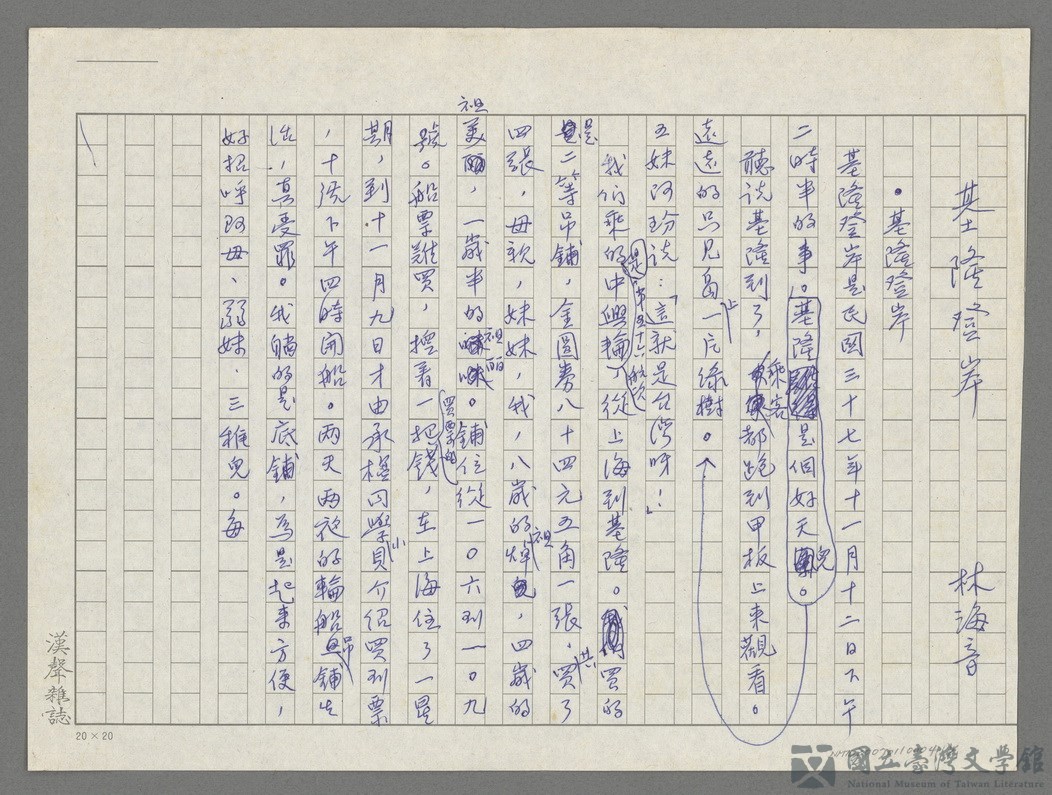 基隆登岸 林海音
。基隆登岸
基隆登岸是民國三十七年十一月十二日下午
二時半的事。基隆是個好天兒。
聽說基隆到了，乘客都跑到甲板上來觀看。
遠遠的只見島上一片綠樹。
五妹阿玢說：「這就是台灣呀！」
我們乘的是中興輪第五十六航次，從上海到基隆。買的
是二等吊鋪，金圓券八十四元五角一張，共買了
四張，母親，妹妹，我，八歲的祖焯，四歲的
祖美，一歲半的祖麗。鋪位從一〇六到一〇九
號。船票難買，擋著一把買票的錢，在上海住了一星
期，到十一月九日才由承楹同學小貝介紹買到票
，十號下午四時開船。兩天兩夜的輪船吊鋪生
活，真受罪。我睡的是底鋪，為是起來方便，
好招呼阿母、弱妹、三稚兒。每
漢聲雜誌
20×20
國立臺灣文學館
National Museum of Taiwan Literature